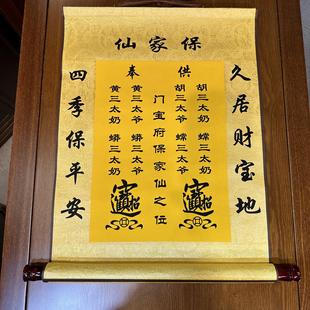 保家仙
久居财宝地
供奉
胡三太奶 蠕三太奶
胡三太爷 蠕三太爷
门宝府保家仙之位
黄三太爷 蟒三太爷
黄三太奶 蟒三太奶
招财进宝
招财进宝
四季保平安